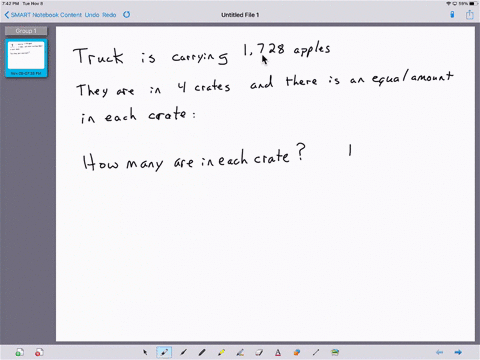 7:42 PM Tue Nov 8
SMART Notebook Content Undo Redo
Untitled File 1
Group 1
Truck is carrying 1,728 apples
They are in 4 crates and there is an equal amount
in each crate:
How many are in each crate? 1